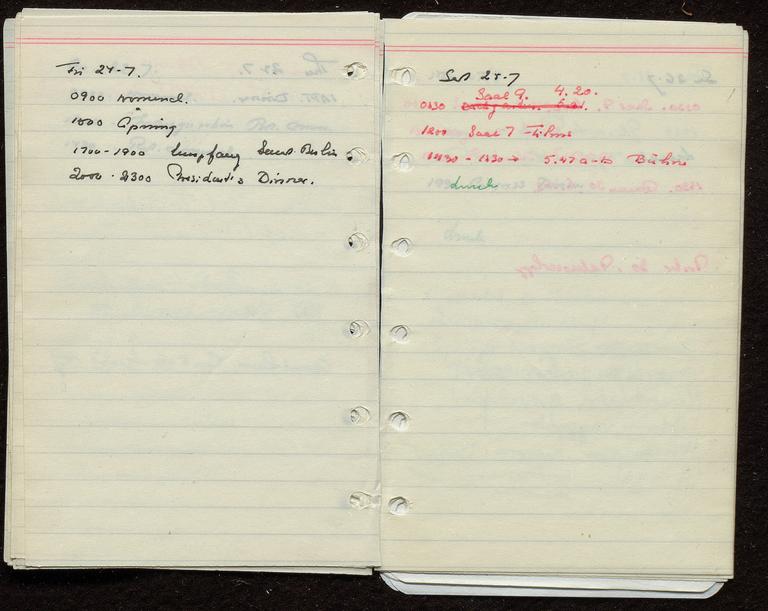 Fri 24-7.
0900 Nomencl.
1000 Opening
1700-1900 Empfang Senat Berlin
2000-2300 President's Dinner.
Sat 25-7
Saal 9. 4.20.
0830
1200 Saal 7 Films
1430-1830 → 5.47 a-b Bühne
durch